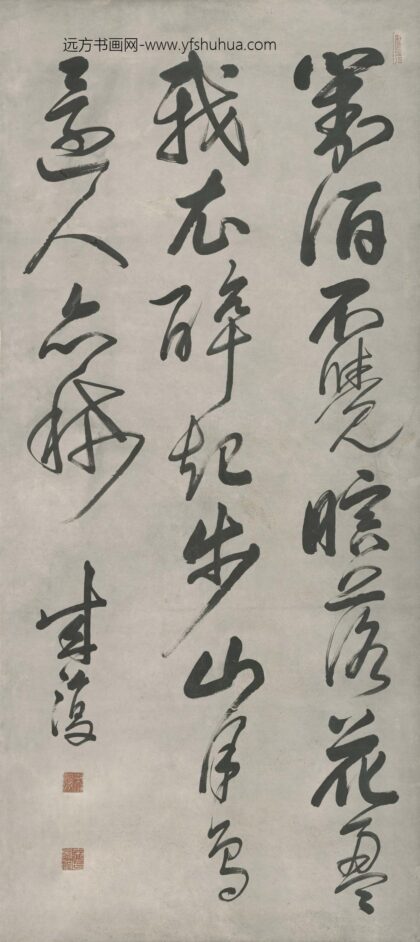 远方书画网-www.yfshuhua.com
對酒不覺暝落花盈
我衣醉起步山月鳥
還人亦稀
來復